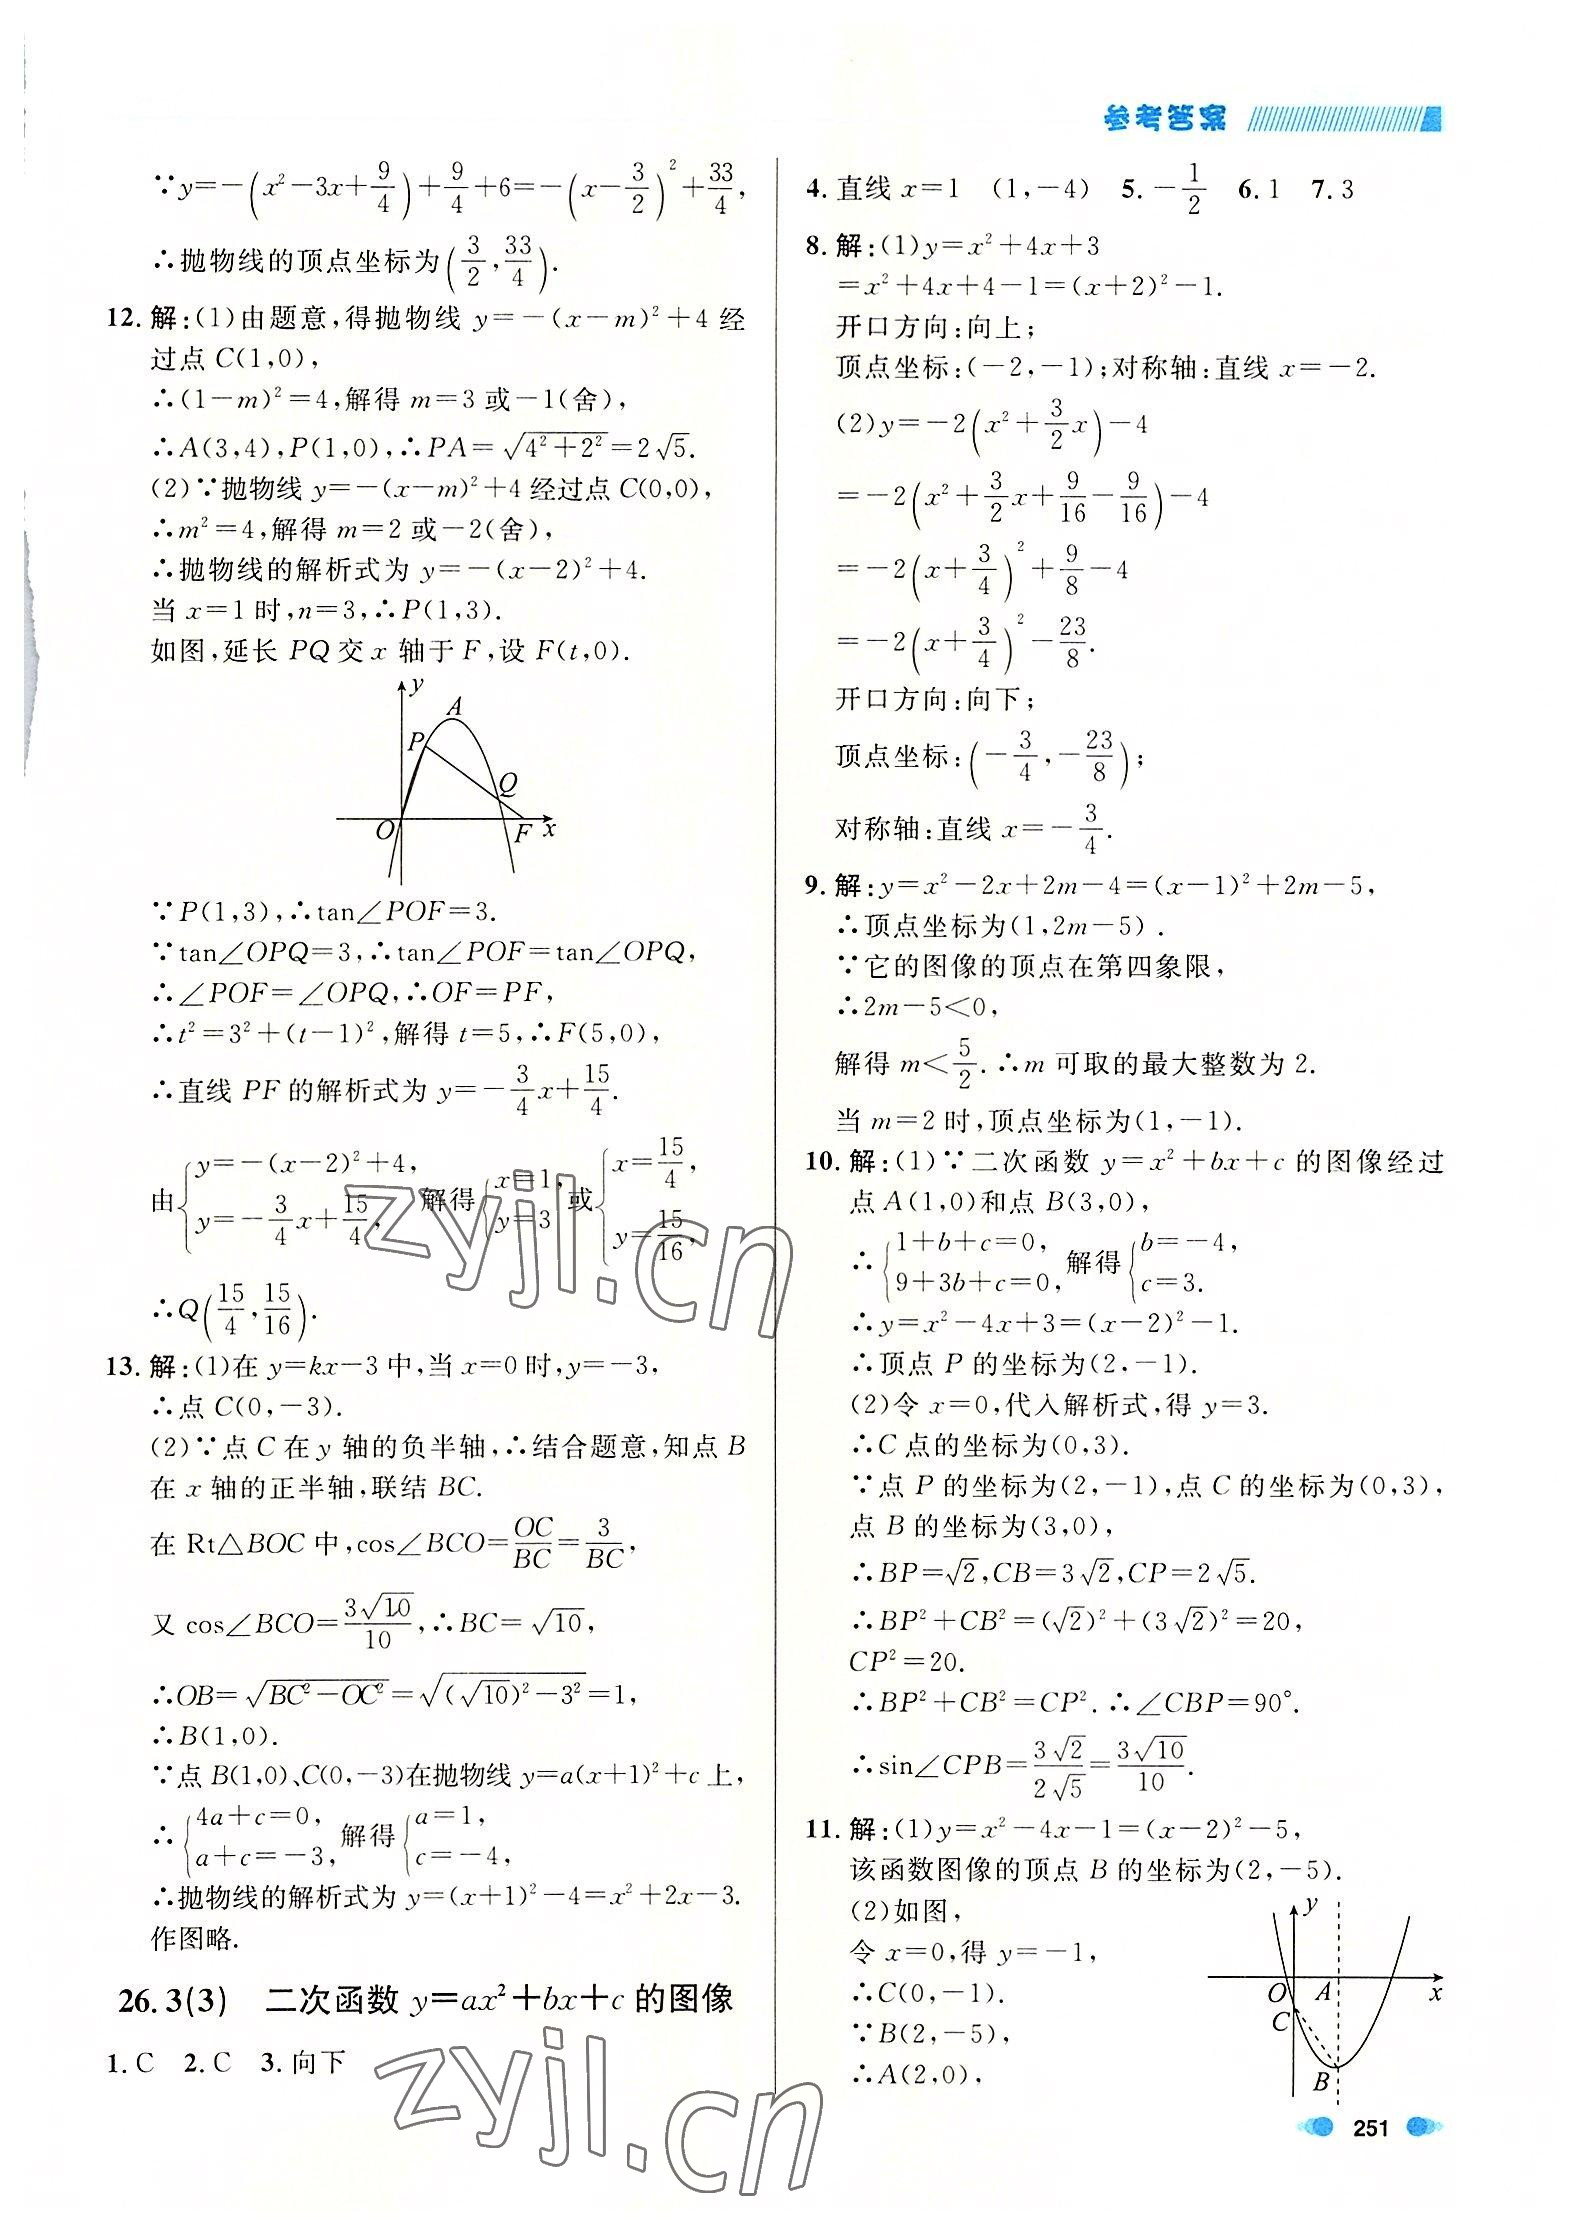 参考答案
∵y=-(x²-3x+9/4)+9/4+6=-(x-3/2)²+33/4,
∴抛物线的顶点坐标为(3/2,33/4).
12. 解:(1)由题意,得抛物线 y=-(x-m)²+4 经
过点 C(1,0),
∴(1-m)²=4,解得 m=3 或-1(舍),
∴A(3,4),P(1,0),∴PA=√(4²+2²)=2√5.
(2)∵抛物线 y=-(x-m)²+4 经过点 C(0,0),
∴m²=4,解得 m=2 或-2(舍),
∴抛物线的解析式为 y=-(x-2)²+4.
当 x=1 时,n=3,∴P(1,3).
如图,延长 PQ 交 x 轴于 F,设 F(t,0).
y
A
P
Q
O F x
∵P(1,3),∴tan∠POF=3.
∵tan∠OPQ=3,∴tan∠POF=tan∠OPQ,
∴∠POF=∠OPQ,∴OF=PF,
∴t²=3²+(t-1)²,解得 t=5,∴F(5,0),
∴直线 PF 的解析式为 y=-3/4x+15/4.
由{y=-(x-2)²+4, y=-3/4x+15/4, 解得{x=1, y=3 或{x=15/4, y=15/16,
∴Q(15/4,15/16).
13. 解:(1)在 y=kx-3 中,当 x=0 时,y=-3,
∴点 C(0,-3).
(2)∵点 C 在 y 轴的负半轴,∴结合题意,知点 B
在 x 轴的正半轴,联结 BC.
在 Rt△BOC 中,cos∠BCO=OC/BC=3/BC,
又 cos∠BCO=3√10/10,∴BC=√10,
∴OB=√(BC²-OC²)=√((√10)²-3²)=1,
∴B(1,0).
∵点 B(1,0)、C(0,-3)在抛物线 y=a(x+1)²+c 上,
∴{4a+c=0, a+c=-3, 解得{a=1, c=-4,
∴抛物线的解析式为 y=(x+1)²-4=x²+2x-3.
作图略.
26.3(3) 二次函数 y=ax²+bx+c 的图像
1. C 2. C 3. 向下
4. 直线 x=1 (1,-4) 5. -1/2 6. 1 7. 3
8. 解:(1)y=x²+4x+3
=x²+4x+4-1=(x+2)²-1.
开口方向:向上;
顶点坐标:(-2,-1);对称轴:直线 x=-2.
(2)y=-2(x²+3/2x)-4
=-2(x²+3/2x+9/16-9/16)-4
=-2(x+3/4)²+9/8-4
=-2(x+3/4)²-23/8.
开口方向:向下;
顶点坐标:(-3/4,-23/8);
对称轴:直线 x=-3/4.
9. 解:y=x²-2x+2m-4=(x-1)²+2m-5,
∴顶点坐标为(1,2m-5).
∵它的图像的顶点在第四象限,
∴2m-5<0,
解得 m<5/2.∴m 可取的最大整数为 2.
当 m=2 时,顶点坐标为(1,-1).
10. 解:(1)∵二次函数 y=x²+bx+c 的图像经过
点 A(1,0)和点 B(3,0),
∴{1+b+c=0, 9+3b+c=0, 解得{b=-4, c=3.
∴y=x²-4x+3=(x-2)²-1.
∴顶点 P 的坐标为(2,-1).
(2)令 x=0,代入解析式,得 y=3.
∴C 点的坐标为(0,3).
∵点 P 的坐标为(2,-1),点 C 的坐标为(0,3),
点 B 的坐标为(3,0),
∴BP=√2,CB=3√2,CP=2√5.
∴BP²+CB²=(√2)²+(3√2)²=20,
CP²=20.
∴BP²+CB²=CP².∴∠CBP=90°.
∴sin∠CPB=3√2/2√5=3√10/10.
11. 解:(1)y=x²-4x-1=(x-2)²-5,
该函数图像的顶点 B 的坐标为(2,-5).
(2)如图,
令 x=0,得 y=-1,
∴C(0,-1).
∵B(2,-5),
∴A(2,0),
y
O A x
C
B
251
zyjl.cn
zyjl.cn